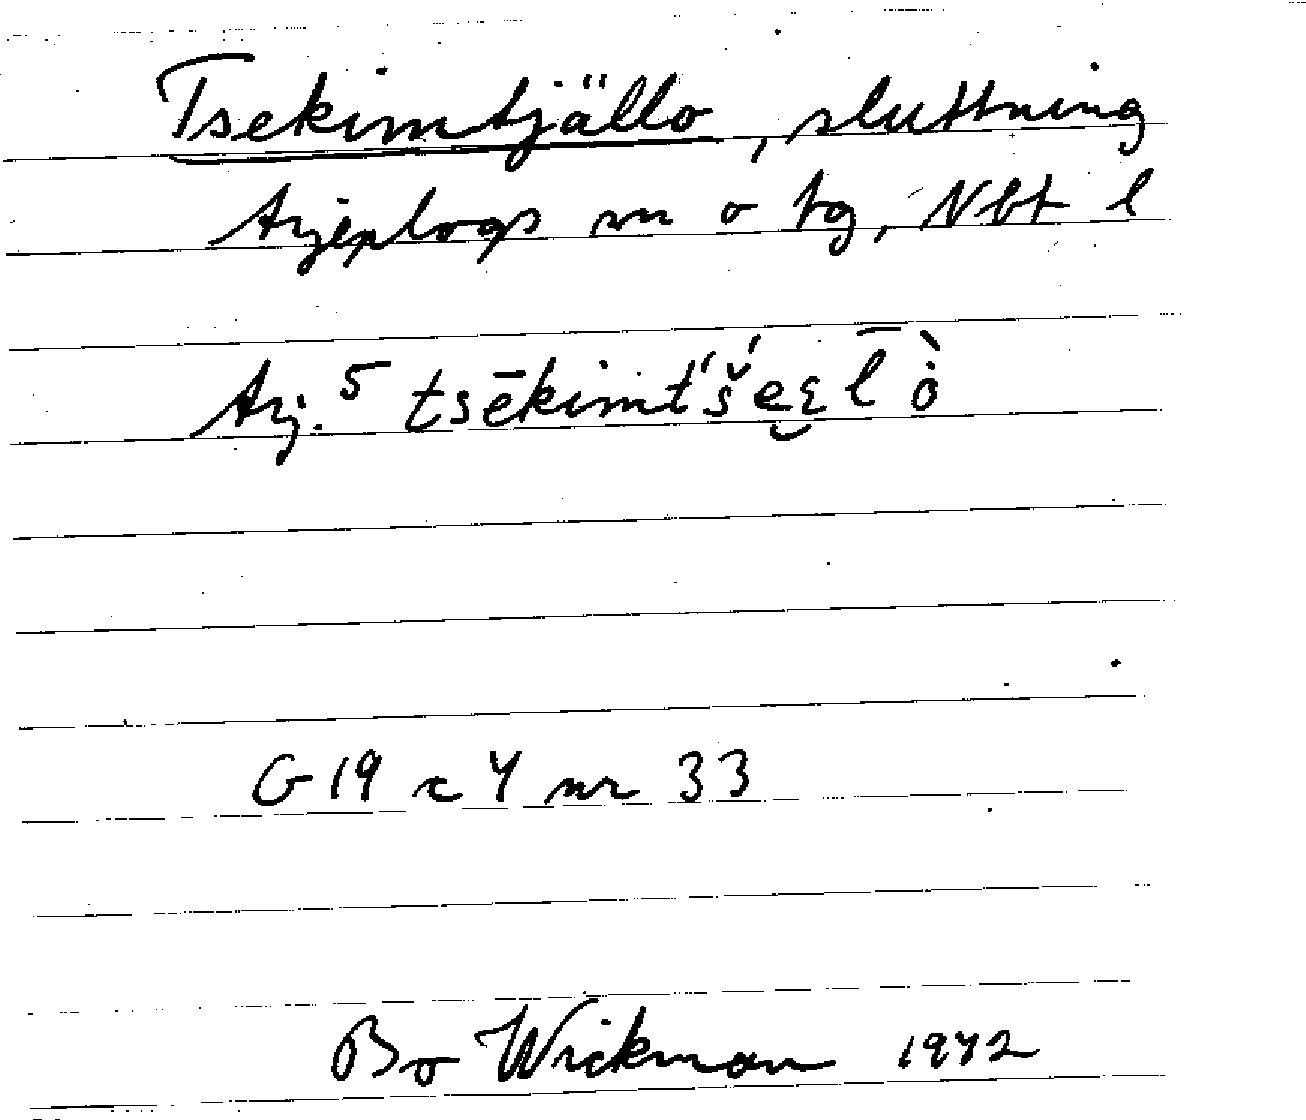 Tsekimtjällo, sluttning
Arjeplogs sn o tg, Nbt l
Arj. 5 tsēkimt́š́ee̮ɛl̅ȯ̀
G 19 c 4 nr 33
Bo Wickman 1972